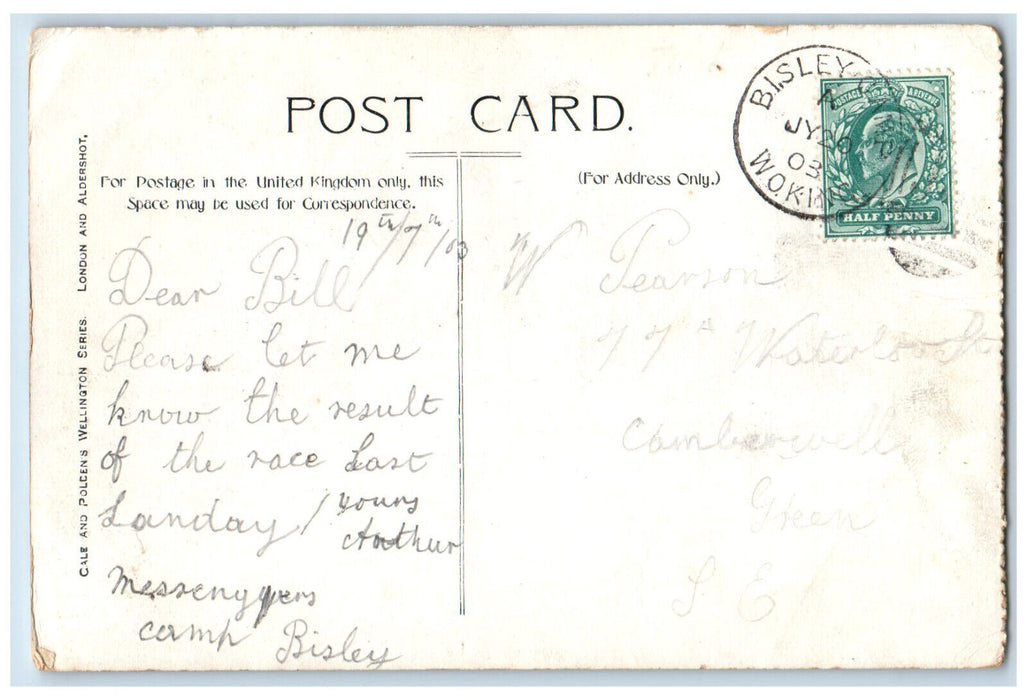 POST CARD.
For Postage in the United Kingdom only, this
Space may be used for Correspondence.
(For Address Only.)
GALE AND POLDEN'S WELLINGTON SERIES. LONDON AND ALDERSHOT.
19th/7th/03
Dear Bill
Please let me
know the result
of the race Last
Sanday / yours
Arthur
Messengyers
camp Bisley
W Pearson
77A Waterloo St
Camberwell
Green
S E
BISLEY
A
JY 20
03
WOKING
POSTAGE & REVENUE
HALF PENNY